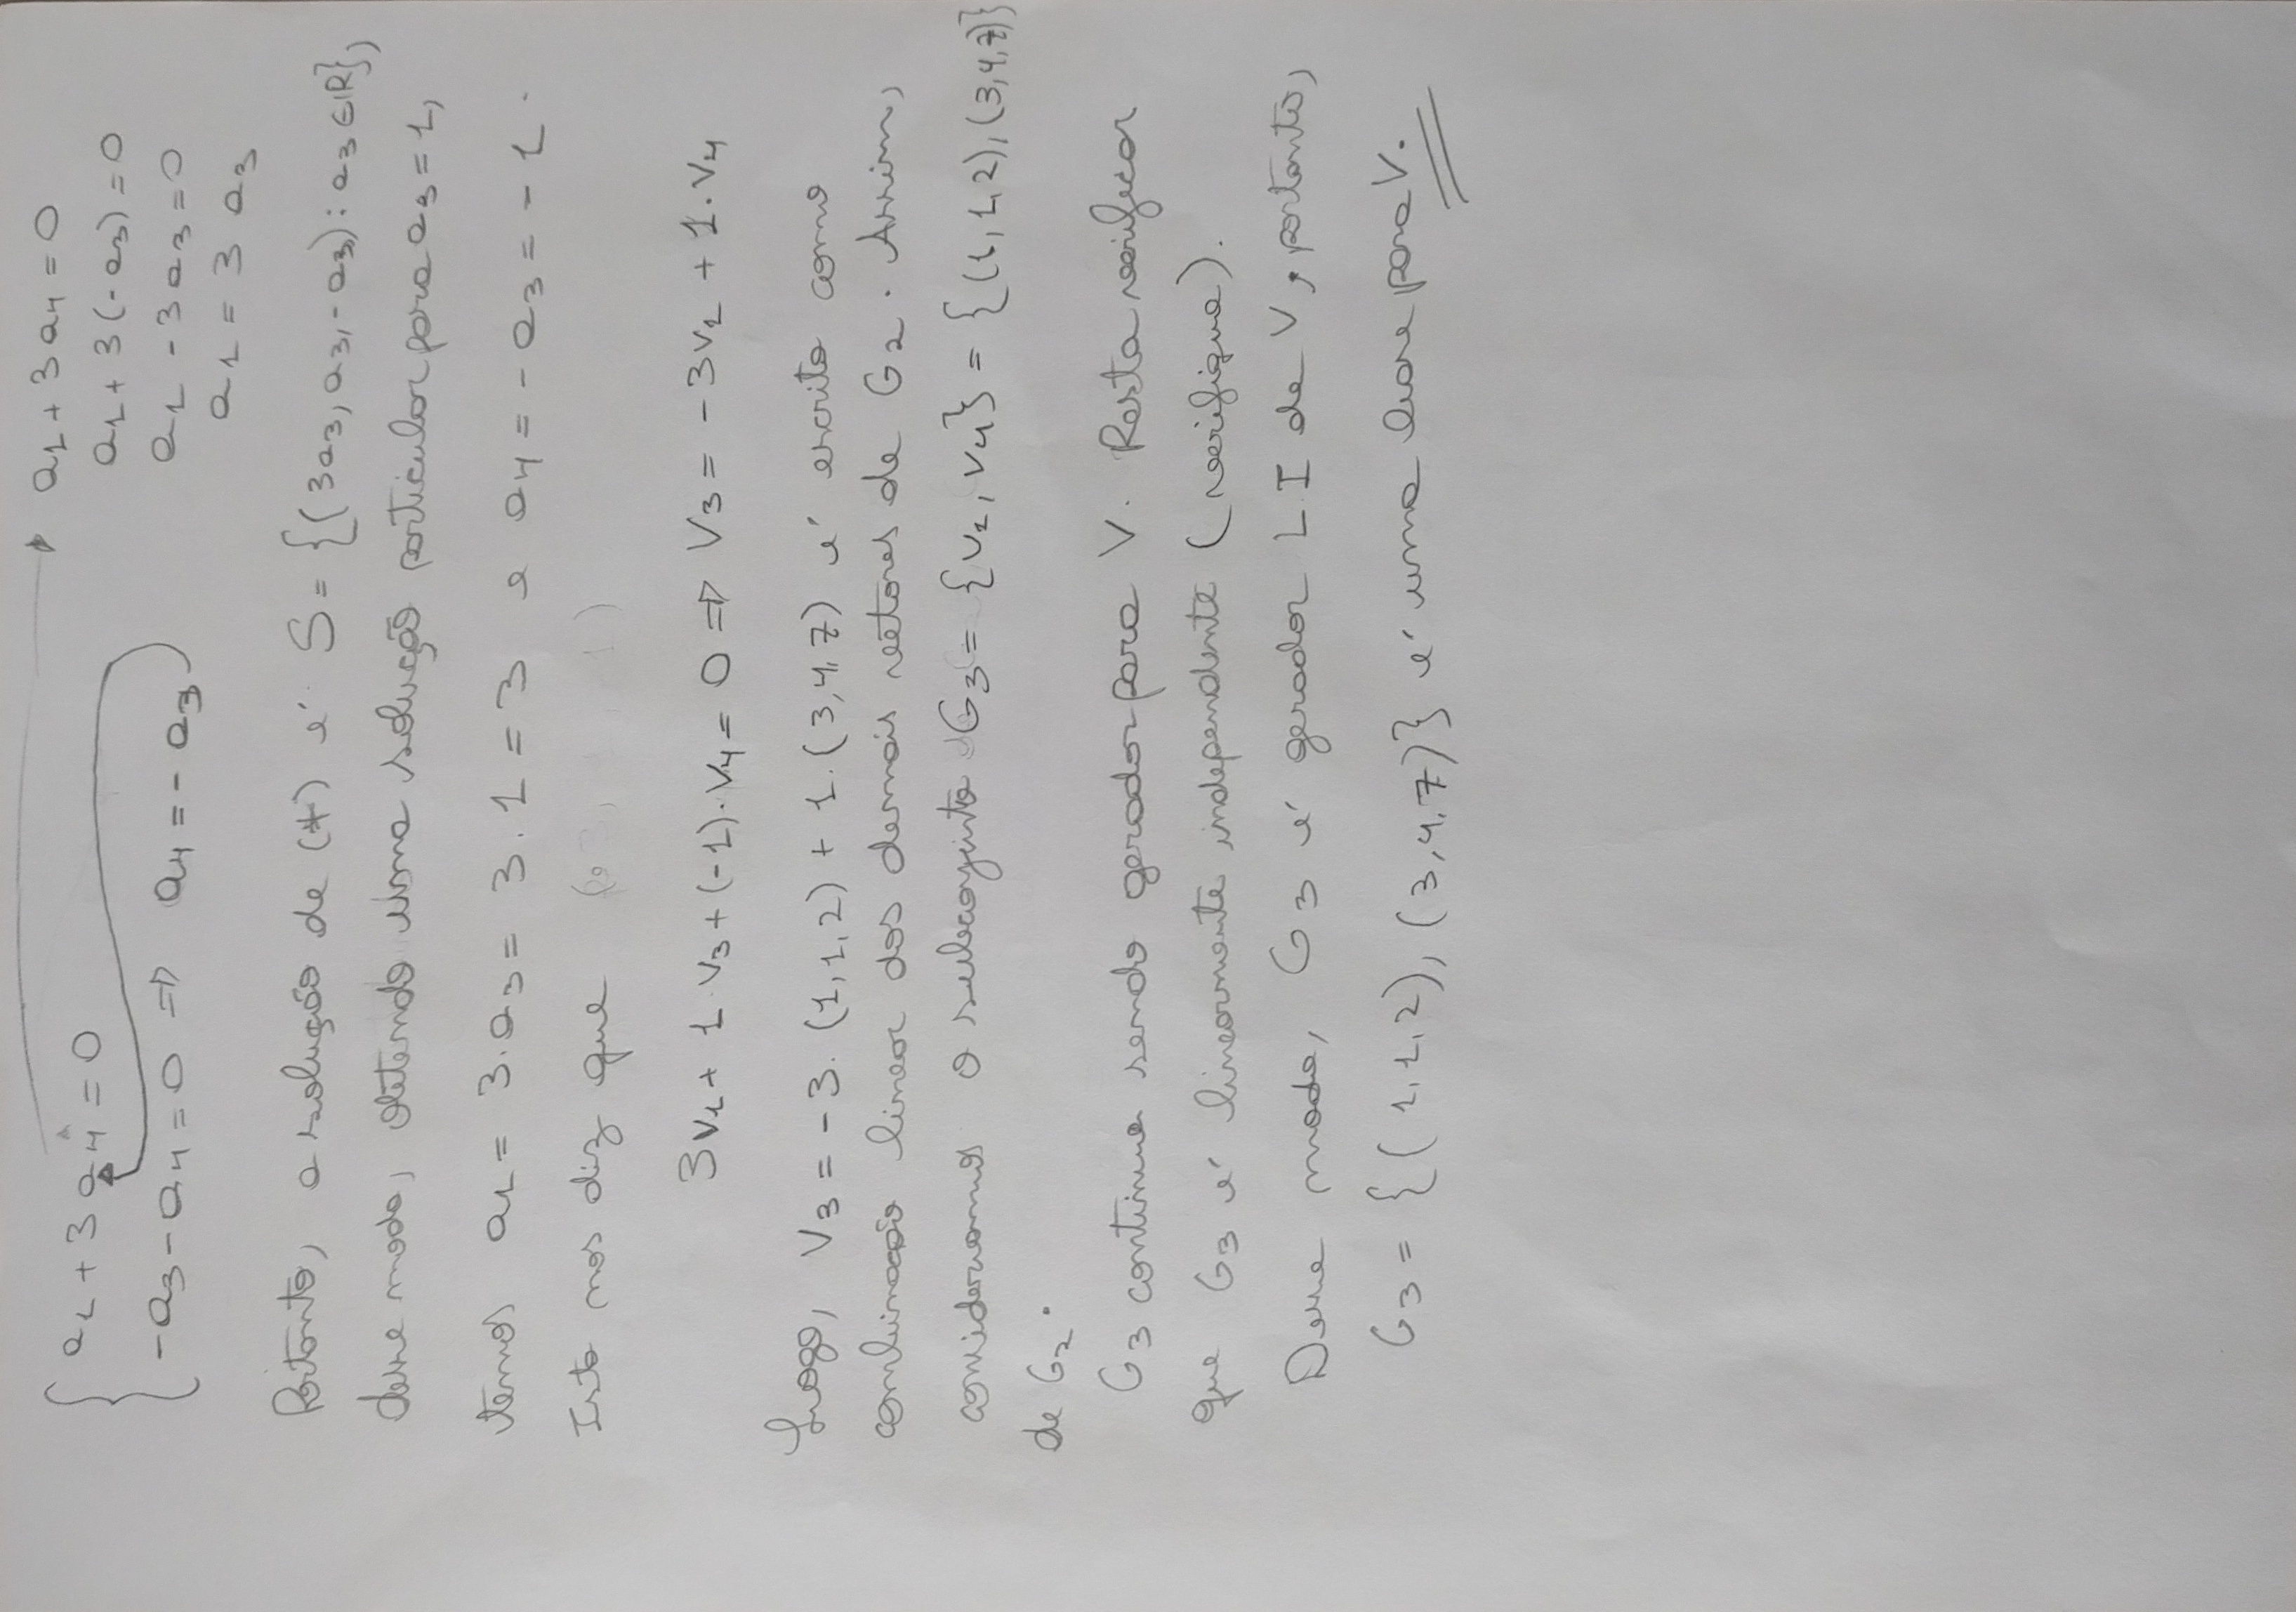 { a1 + 3 a4 = 0 → a1 + 3 a4 = 0
-a3 - a4 = 0 ⇒ a4 = - a3
a1 + 3 (-a3) = 0
a1 - 3 a3 = 0
a1 = 3 a3
Portanto, a solução de (*) é S = {(3a3, a3, -a3) : a3 ∈ IR},
desse modo, obtendo uma solução particular para a3 = 1,
temos a1 = 3.a3 = 3.1 = 3 e a4 = -a3 = -1.
Isto nos diz que
3v1 + 1.v3 + (-1).v4 = 0 ⇒ v3 = -3v1 + 1.v4
Logo, v3 = -3.(1,1,2) + 1.(3,4,7) é escrito como
combinação linear dos demais vetores de G2. Assim,
consideramos o subconjunto G3 = {v1, v4} = {(1,1,2),(3,4,7)}
de G2.
G3 continua sendo gerador para V. Resta verificar
que G3 é linearmente independente (verifique).
Desse modo, G3 é gerador L.I de V, portanto,
G3 = {(1,1,2), (3,4,7)} é uma base para V.